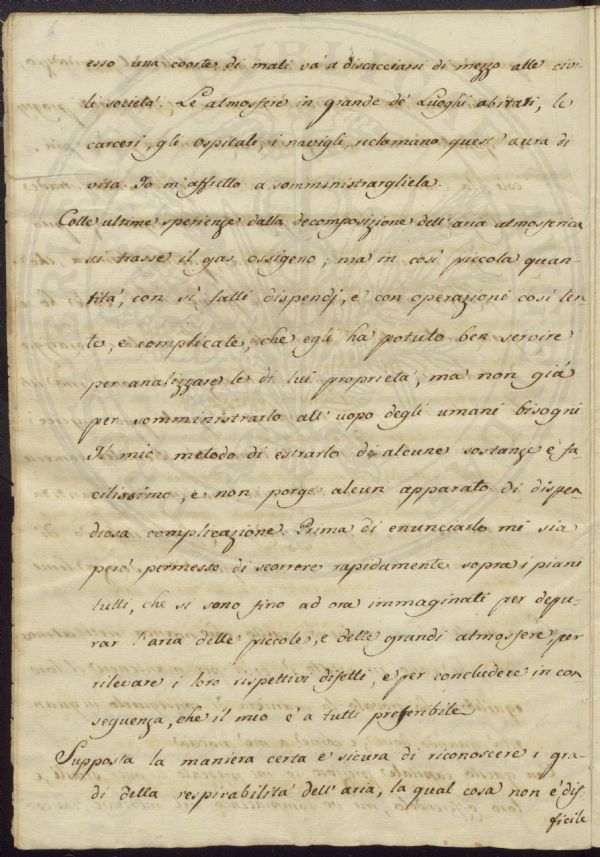 esso una coorte di mali và a discacciarsi di mezzo alle civi-
li società. Le atmosfere in grande de' Luoghi abitati, le
carceri, gli ospitali, i navigli, reclamano quest' aura di
vita. Io m'affretto a somministrargliela.
Colle ultime sperienze dalla decomposizione dell'aria atmosferica
si trasse il gas ossigeno; ma in così piccola quan-
tità, con sì fatti dispendj, e con operazioni così len-
te, e complicate, che egli ha potuto ben servire
per analizzare le di lui proprietà, ma non già
per somministrarlo all'uopo degli umani bisogni.
Il mio metodo di estrarlo da alcune sostanze è fa-
cilissimo, e non porge alcun apparato di dispen-
diosa complicazione. Prima di enunciarlo mi sia
però permesso di scorrere rapidamente sopra i piani
tutti, che si sono fino ad ora immaginati per depu-
rar l'aria delle piccole, e delle grandi atmosfere, per
rilevare i loro rispettivi difetti, e per concludere in con-
seguenza, che il mio è a tutti preferibile
Supposta la maniera certa e sicura di riconoscere i gra-
di della respirabilità dell'aria, la qual cosa non è dif-
ficile